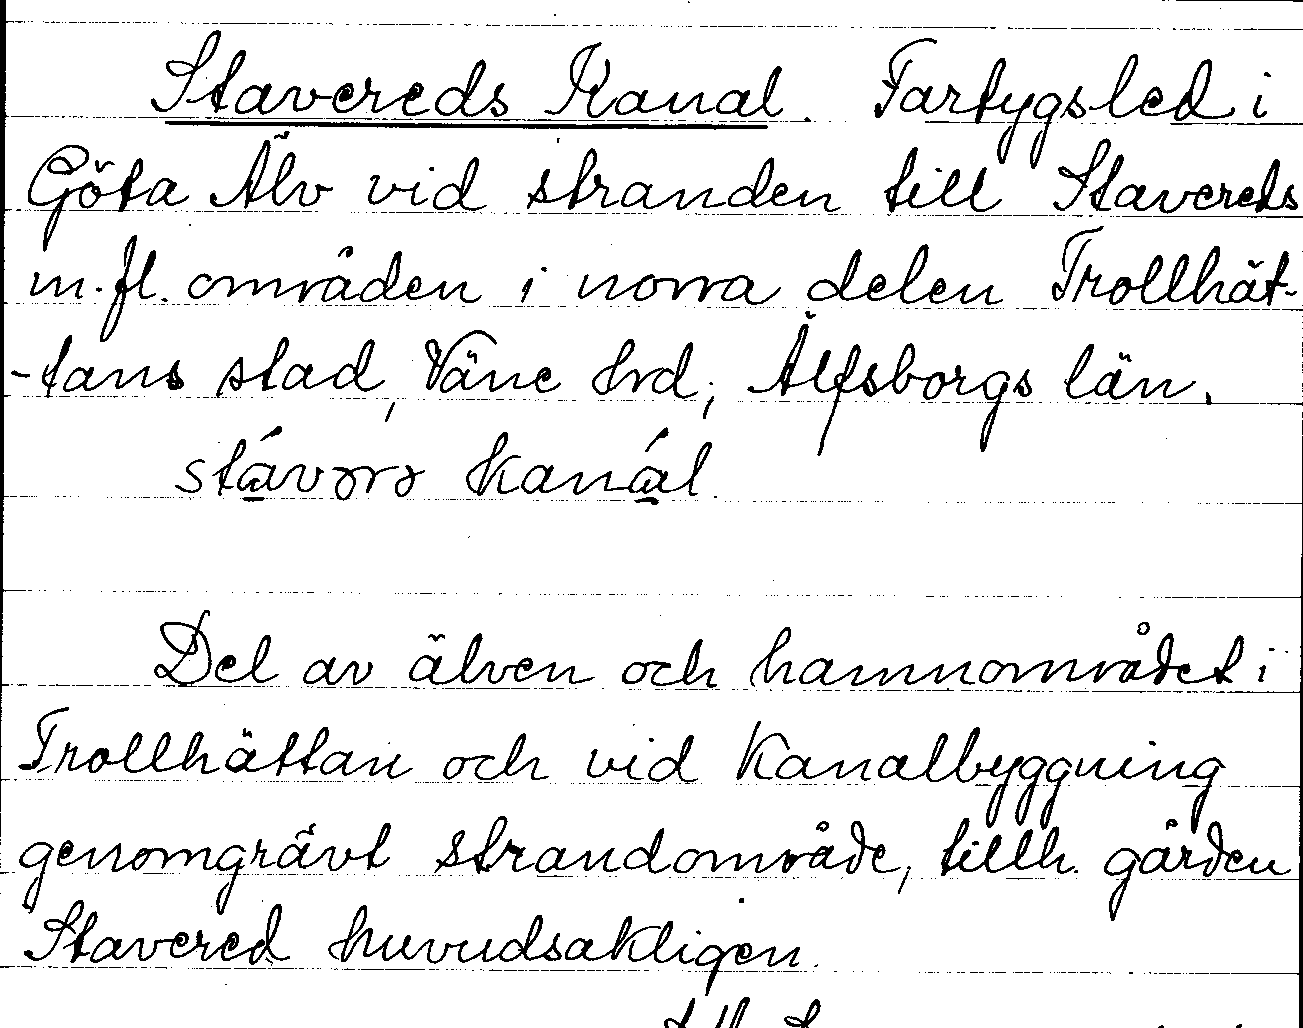 Stavereds Kanal. Fartygsled i
Göta Älv vid stranden till Stavereds
m.fl. områden i norra delen Trollhät-
-tans stad, Väne hrd, Älfsborgs län.
kanál
Del av älven och hamnområdet i
Trollhättan och vid Kanalbyggning
genomgrävt strandområde, tillh. gården
Stavered huvudsakligen.